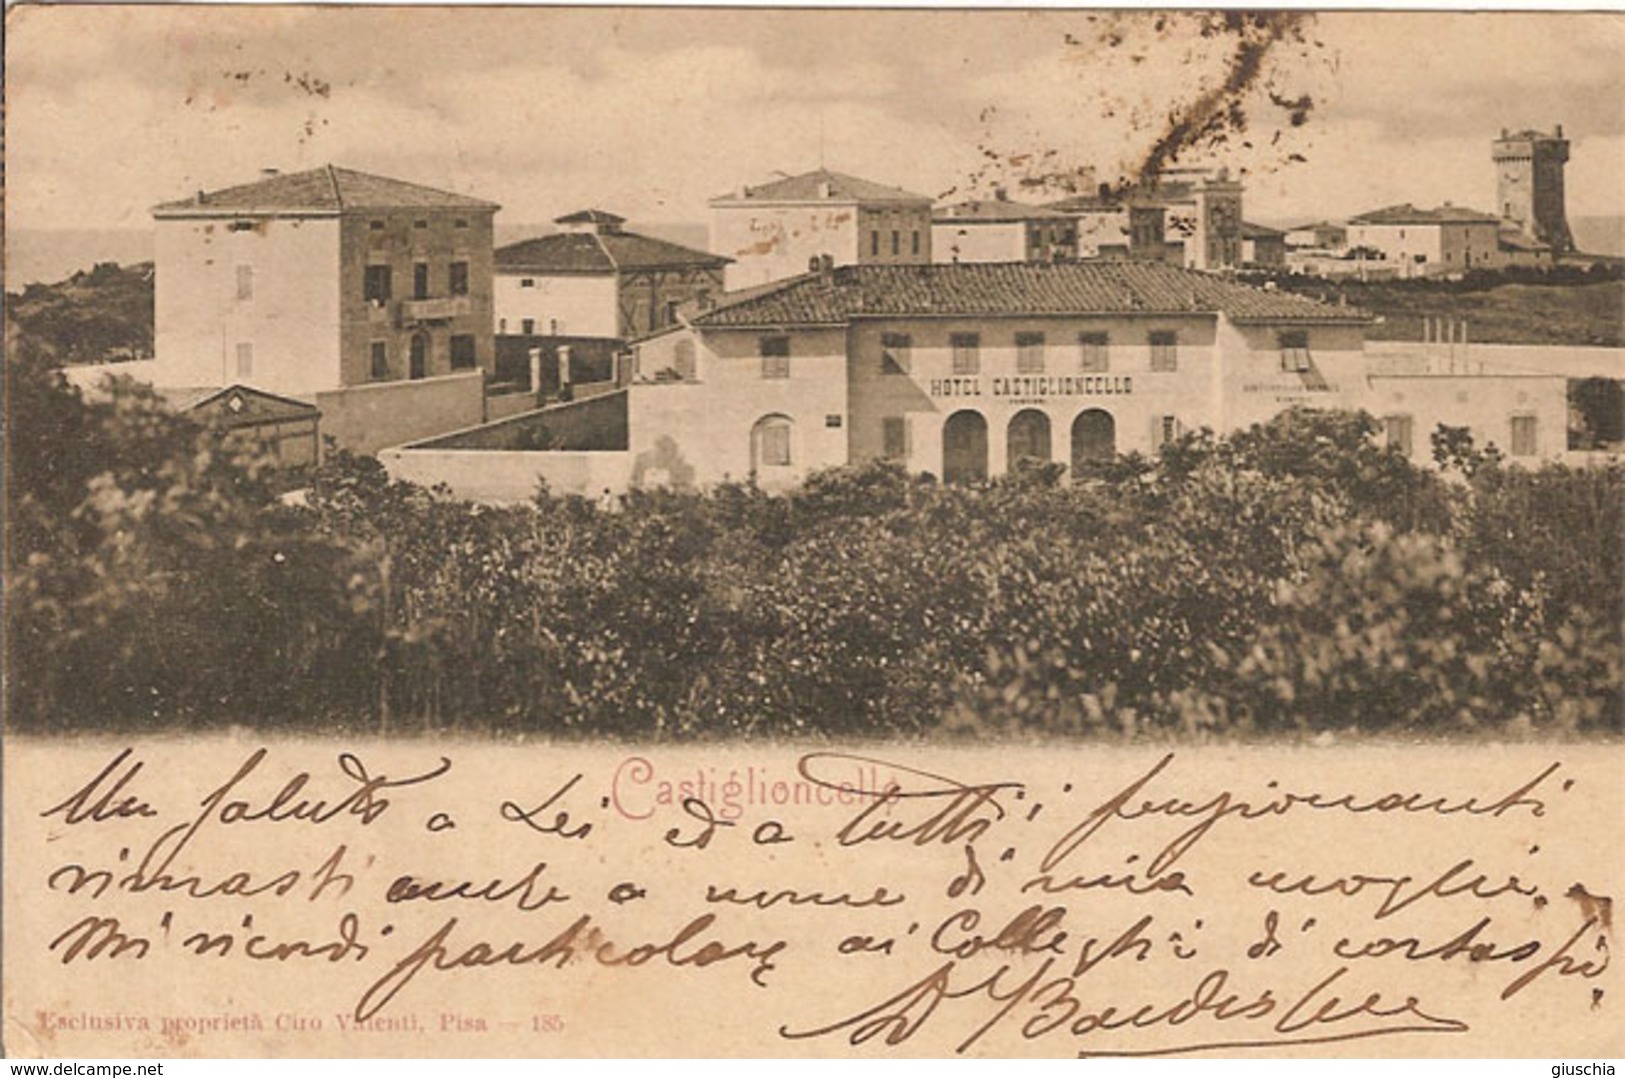 HOTEL CASTIGLIONCELLO
Castiglioncello
Un saluto a Lei ed a tutti i pensionanti
rimasti anche a nome di mia moglie.
Mi ricordi particolare ai Colleghi di
Esclusiva proprietà Ciro Valenti, Pisa — 185
www.delcampe.net
giuschia